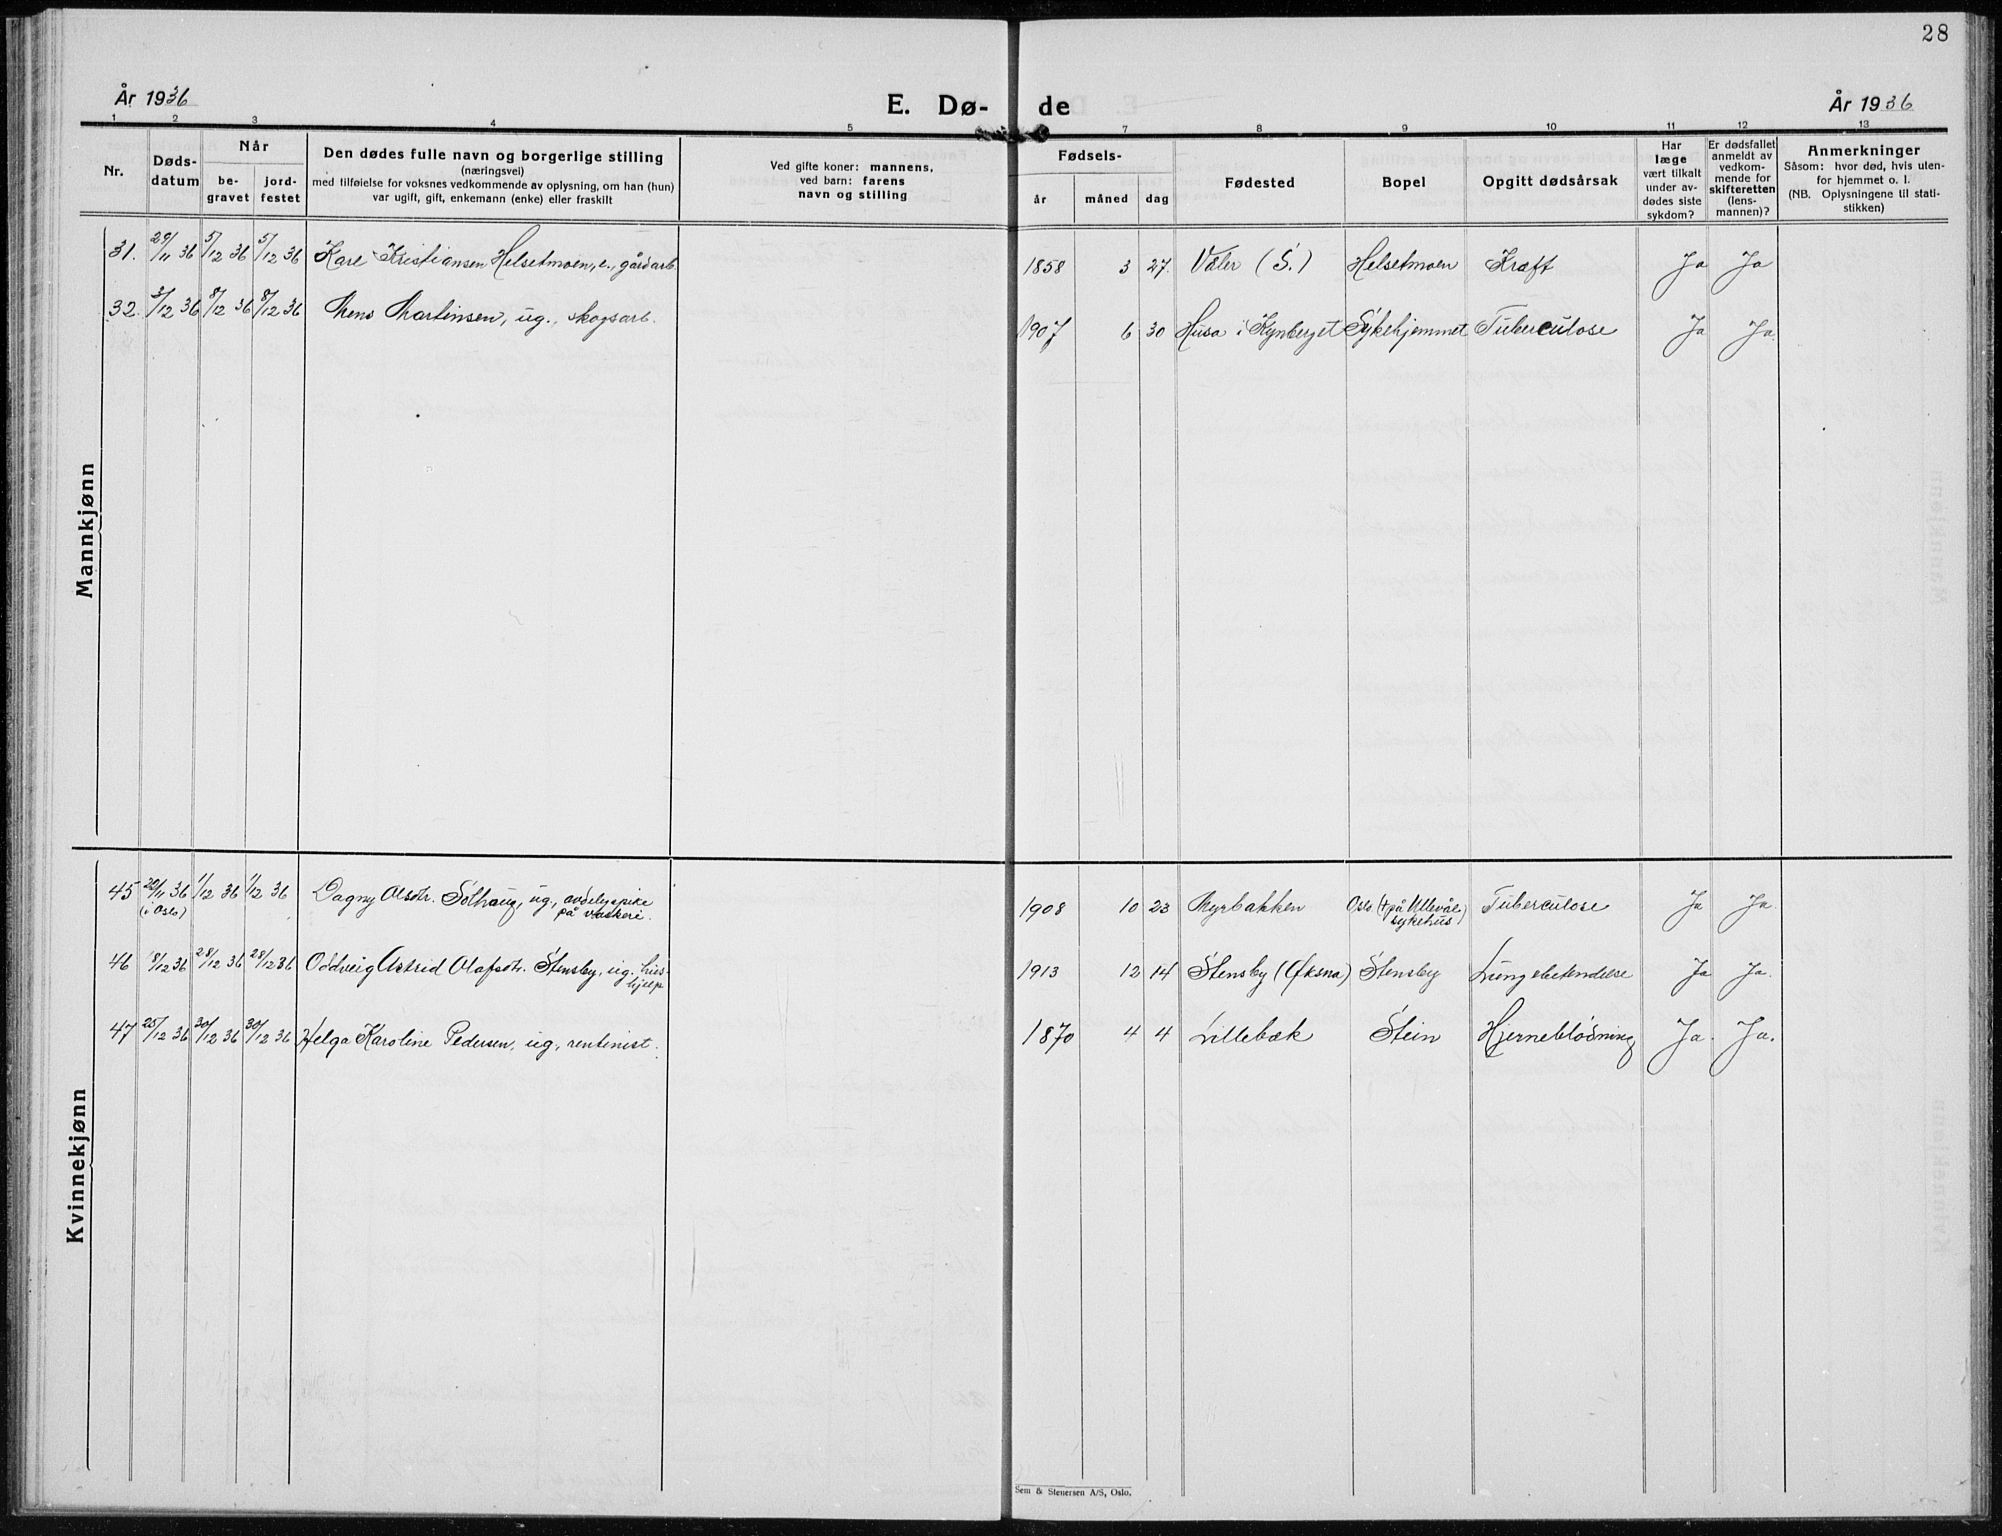 28
År 1936
E. Dø-
de
År 1936
1 2 3 4 5 7 8 9 10 11 12 13
Nr.
Døds-
datum
Når
be-
gravet
jord-
festet
Den dødes fulle navn og borgerlige stilling
(næringsvei)
med tilføielse for voksnes vedkommende av oplysning, om han (hun)
var ugift, gift, enkemann (enke) eller fraskilt
Ved gifte koner: mannens,
ved barn: farens
navn og stilling
Fødsels-
år
måned
dag
Fødested
Bopel
Opgitt dødsårsak
Har
læge
vært tilkalt
under av-
dødes siste
sykdom?
Er dødsfallet
anmeldt av
vedkom-
mende for
skifteretten
(lens-
mannen)?
Anmerkninger
Såsom: hvor død, hvis uten-
for hjemmet o. l.
(NB. Oplysningene til stati-
stikken)
Mannkjønn
31. 29/11 36 5/12 36 5/12 36 Kare Kristiansen Helsetmoen, e., gårdarb. 1858 3 27. Våler (S.) Helsetmoen Kræft Ja Ja
32. 3/12 36 8/12 36 8/12 36 Mens Martinsen, ug., skogsarb. 1907 6 30 Husa i Kynberget Sykehjemmet Tuberculose Ja Ja.
Kvinnekjønn
45 /11 36 1/12 36 1/12 36 Dagny Olsdtr. Solhaug, ug., avdelgspike 1908 10 23 Myrbakken Oslo (+ på Ullevål Tuberculose Ja Ja.
(i Oslo) på vaskeri. sykehus)
46 18/12 36 28/12 36 28/12 36 Oddveig Astrid Olafsdtr. Stensby, ug. hus- 1913 12 14 Stensby (Øksna) Stensby Lungebetendelse Ja Ja.
hjelp
47 25/12 36 30/12 36 30/12 36 Helga Karoline Pedersen, ug., rentenist. 1870 4 4 Lillebæk Stein Hjerneblødning Ja. Ja.
Sem & Stenersen A/S, Oslo.